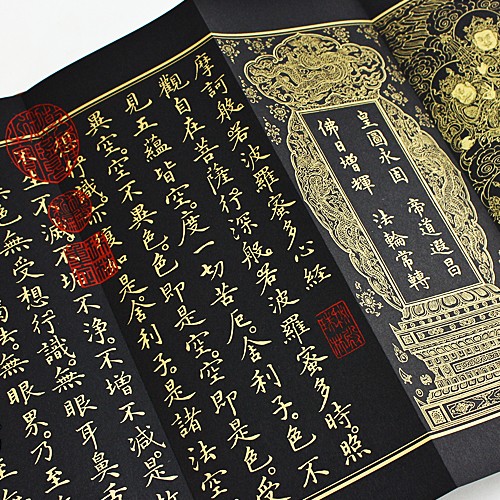 皇圖永固 帝道遐昌
佛日增輝 法輪常轉
摩訶般若波羅蜜多心經
觀自在菩薩行深般若波羅蜜多時。照
見五蘊皆空。度一切苦厄。舍利子。色不
異空。空不異色。色即是空。空即是色。受
想行識。亦復如是。舍利子。是諸法空
不生不滅。不垢不淨。不增不減。是故
色無受想行識。無眼耳鼻舌
法。無眼界。乃至